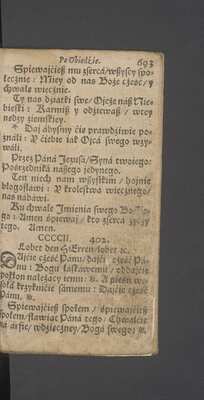 Po Obiedzie. 693
Spiewayćież mu zserca/wszyscy spo-
łecznie: Miey od nas Boże cześć/y
chwałe wiecznie.
Ty nas dziatki swe/Oycze nasz Nie-
bieski: Karmisz y odziewasz/wtey
nedzy ziemskiey.
Daj abysmy ćie prawdźiwie po-
znali: Y ćiebie iak Oyca swego wzy-
wáli.
Przez Páná Jezusa/Syná twoiego:
Posrzedniká nászego jedynego.
Ten niech nam wszystkim/hoynie
błogosłáwi: Y krolestwá wiecznego/
nas nábáwi.
Ku chwale Jmienia swego
go: Amen śpieway/kto zserca
tego. Amen.
CCCCII. 402.
Lobet den HErren/lobet ꝛc.
Dajćie cześć Pánu/dajći cześć Pá-
nu: Bogu łáskáwemu/oddajćie
pokłon należący iemu: A pieśń we-
soła krzyknićie sámemu: Dajćie cześć
Pánu. ꝛc.
Spiewayćież społem/śpiewayćież
społem/sławiąc Páná tego: Chwalćie
ná arfie/wdzieczney/Bogá swego: ꝛc.